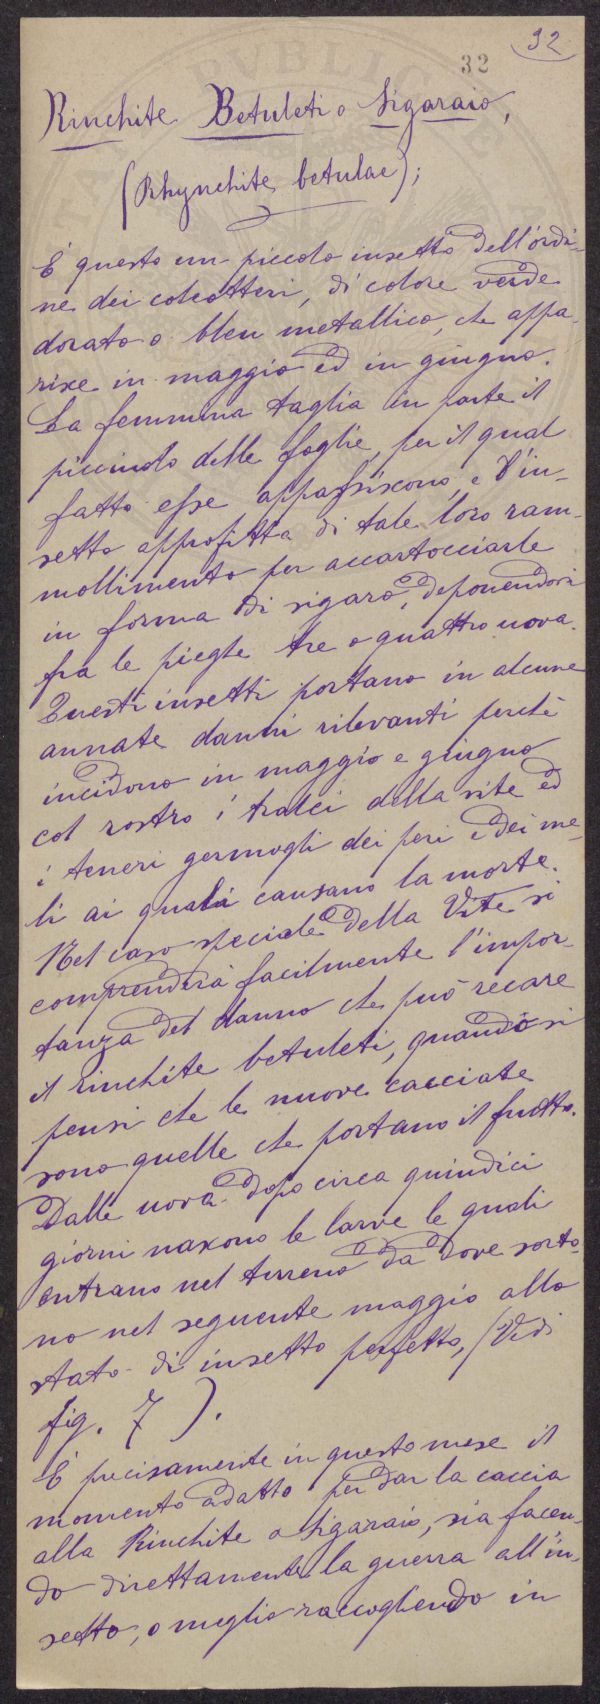 32
32
Rinchite Betuleti o Sigaraio,
(Rhynchite betulae);
È questo un piccolo insetto dell'ordi-
ne dei coleotteri, di colore verde
dorato o bleu metallico, che appa-
risce in maggio ed in giugno.
La femmina taglia in parte il
picciuolo delle foglie, per il qual
fatto esse appassiscono, e l'in-
setto approfitta di tale loro ram-
mollimento per accartocciarle
in forma di sigaro, deponendovi
fra le pieghe tre o quattro uova.
Questi insetti portano in alcune
annate danni rilevanti perchè
incidono in maggio e giugno
col rostro i tralci della vite ed
i teneri germogli dei peri e dei me-
li ai quali causano la morte.
Nel caso speciale della Vite si
comprenderà facilmente l'impor-
tanza del danno che può recare
il rinchite betuleti, quando si
pensi che le nuove cacciate
sono quelle che portano il frutto.
Dalle uova dopo circa quindici
giorni nascono le larve le quali
entrano nel terreno da dove sorto-
no nel seguente maggio allo
stato di insetto perfetto, (Vedi
fig. 7).
È precisamente in questo mese il
momento adatto per dar la caccia
alla Rinchite o Sigaraio, sia facen-
do direttamente la guerra all'in-
setto, o meglio raccogliendo in